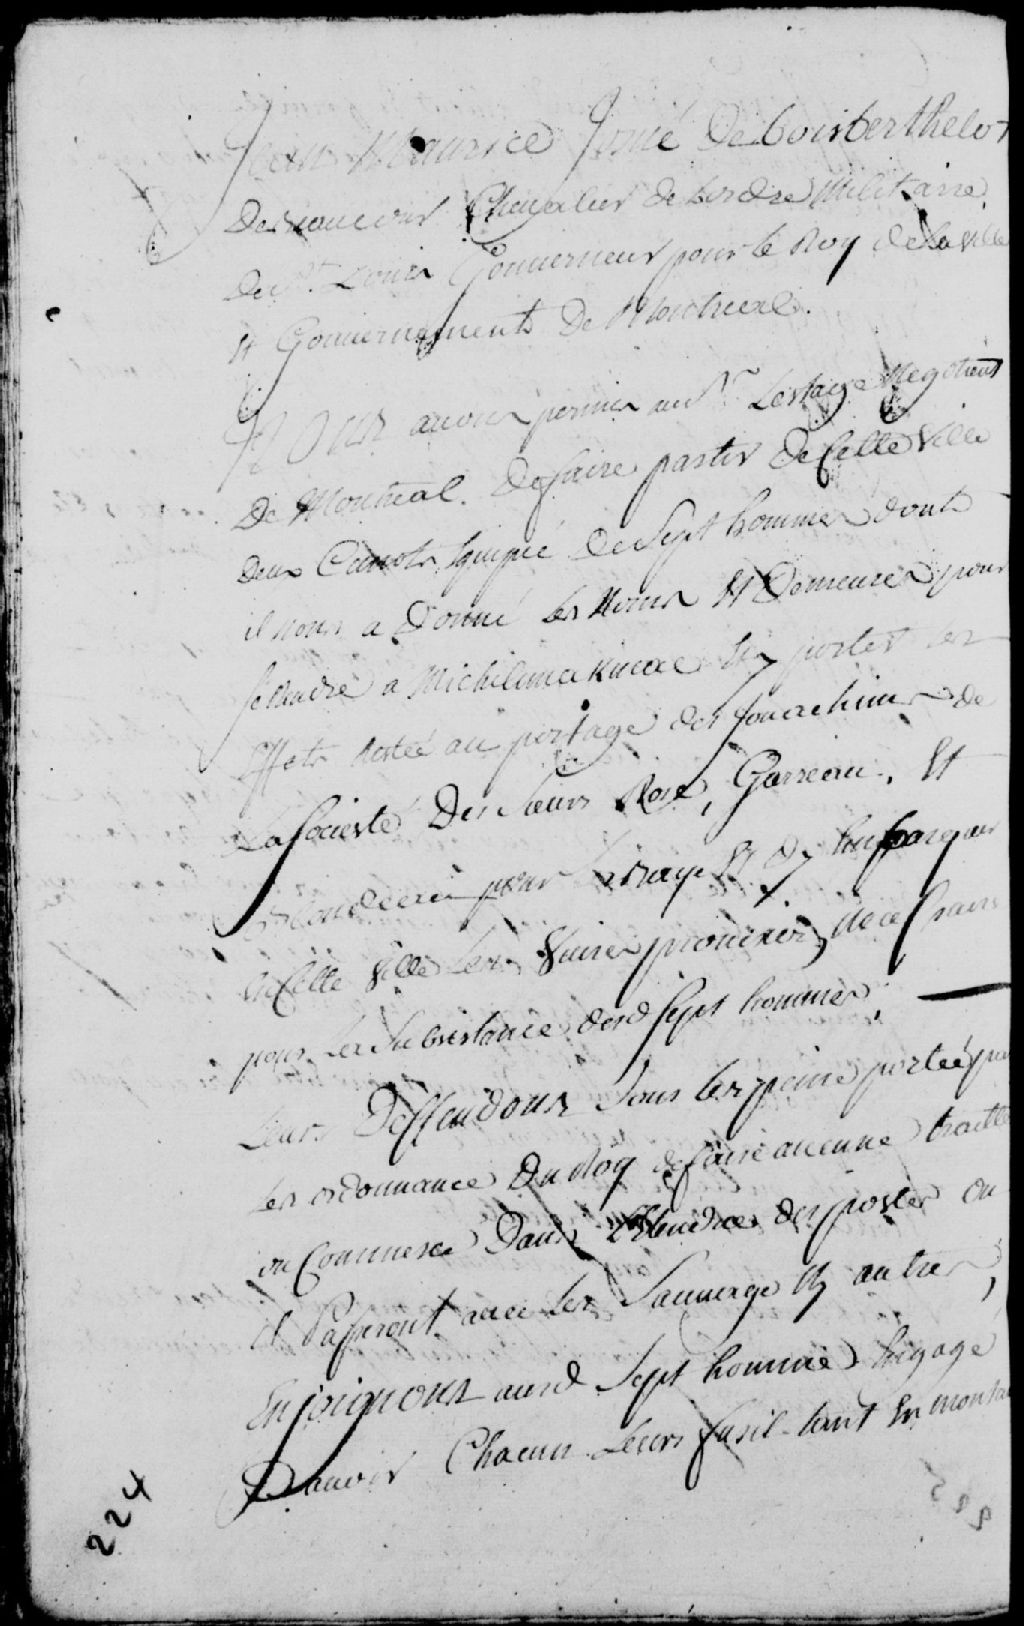 Jean Maurice Josué De boisberthelot
De beaucour Chevalier de Lordre Militaire
De St. Louis Gouverneur pour le Roy de la ville
Et Gouvernement De Montreal.
Nous avons permis au Sr. Lestage Negotiant
De Montreal. De faire partir De Cette Ville
Deux Canots Equipé De Sept hommes dont
il nous a Donné les Noms Et Demeures pour
se Rendre a Michilimakinac Et y porter les
Effets Restée au portage des de
La Societé Des Sieurs Rose, Garreau, Et
pour Et Dy Embarquer
En Cette Ville Les Vivres
pour La Subsistance desd Sept hommes,
Leurs Deffendons Sous les peine portée par
les ordonnance Du Roy de faire aucune traitte
ou Commerce Dans des postes ou
il Passeront avec les Sauvage Et autres,
Enjoignons ausd Sept homme Engagé
Davoir Chacun Leurs fusil tant En montant
224